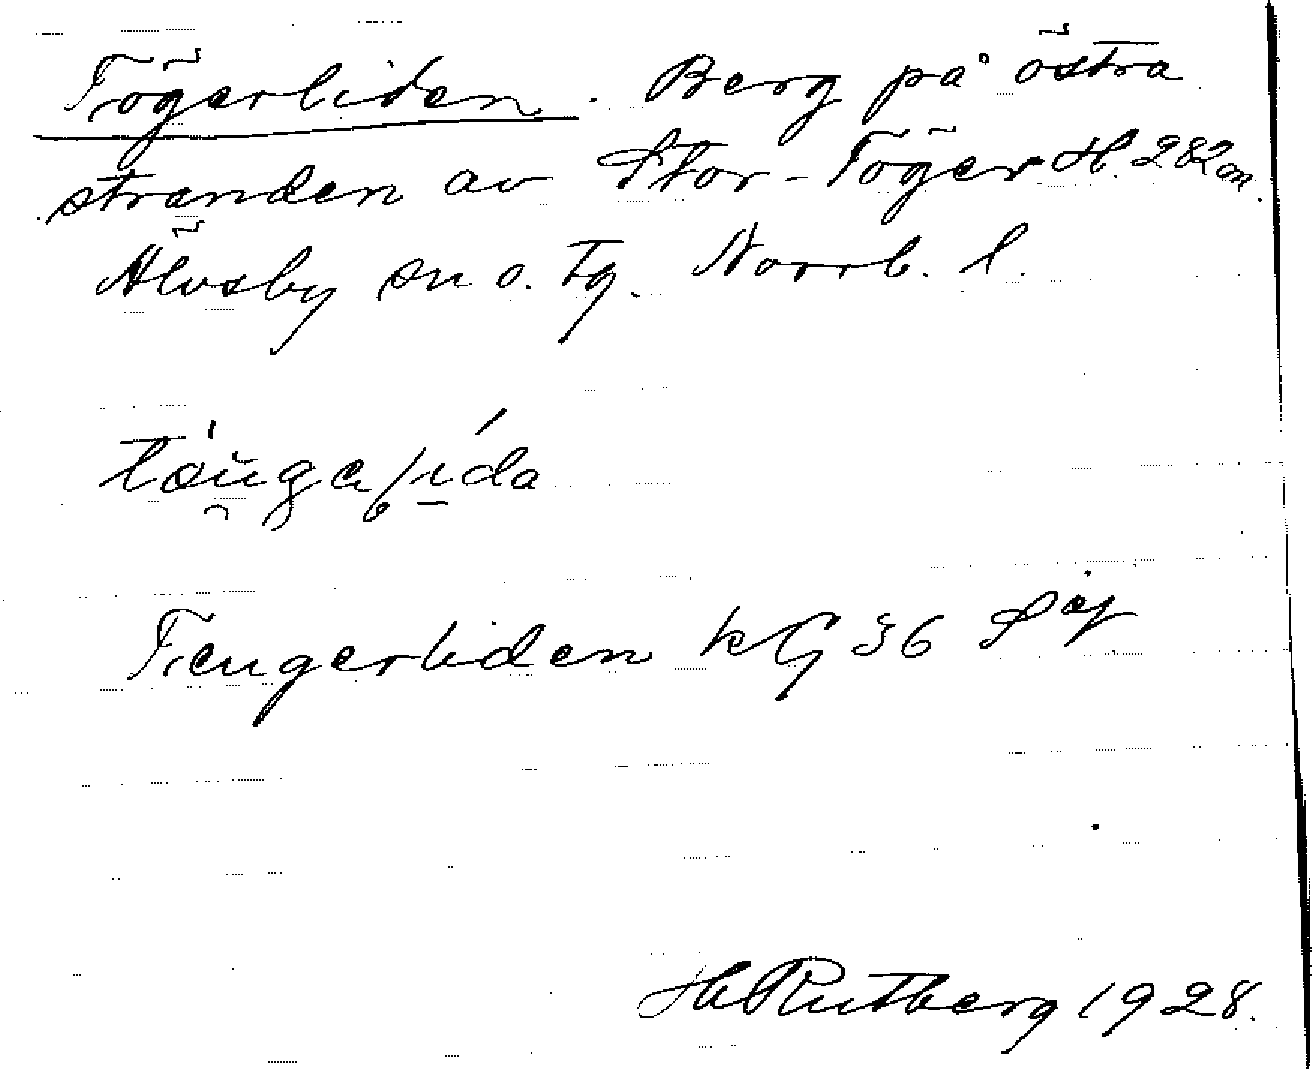 Tögerliden. Berg på östra
stranden av Stor-Töger H. 282 m.
Älvsby sn o. tg. Norrb. l.
Teugerliden kG 36 Söj
H Rutberg 1928.